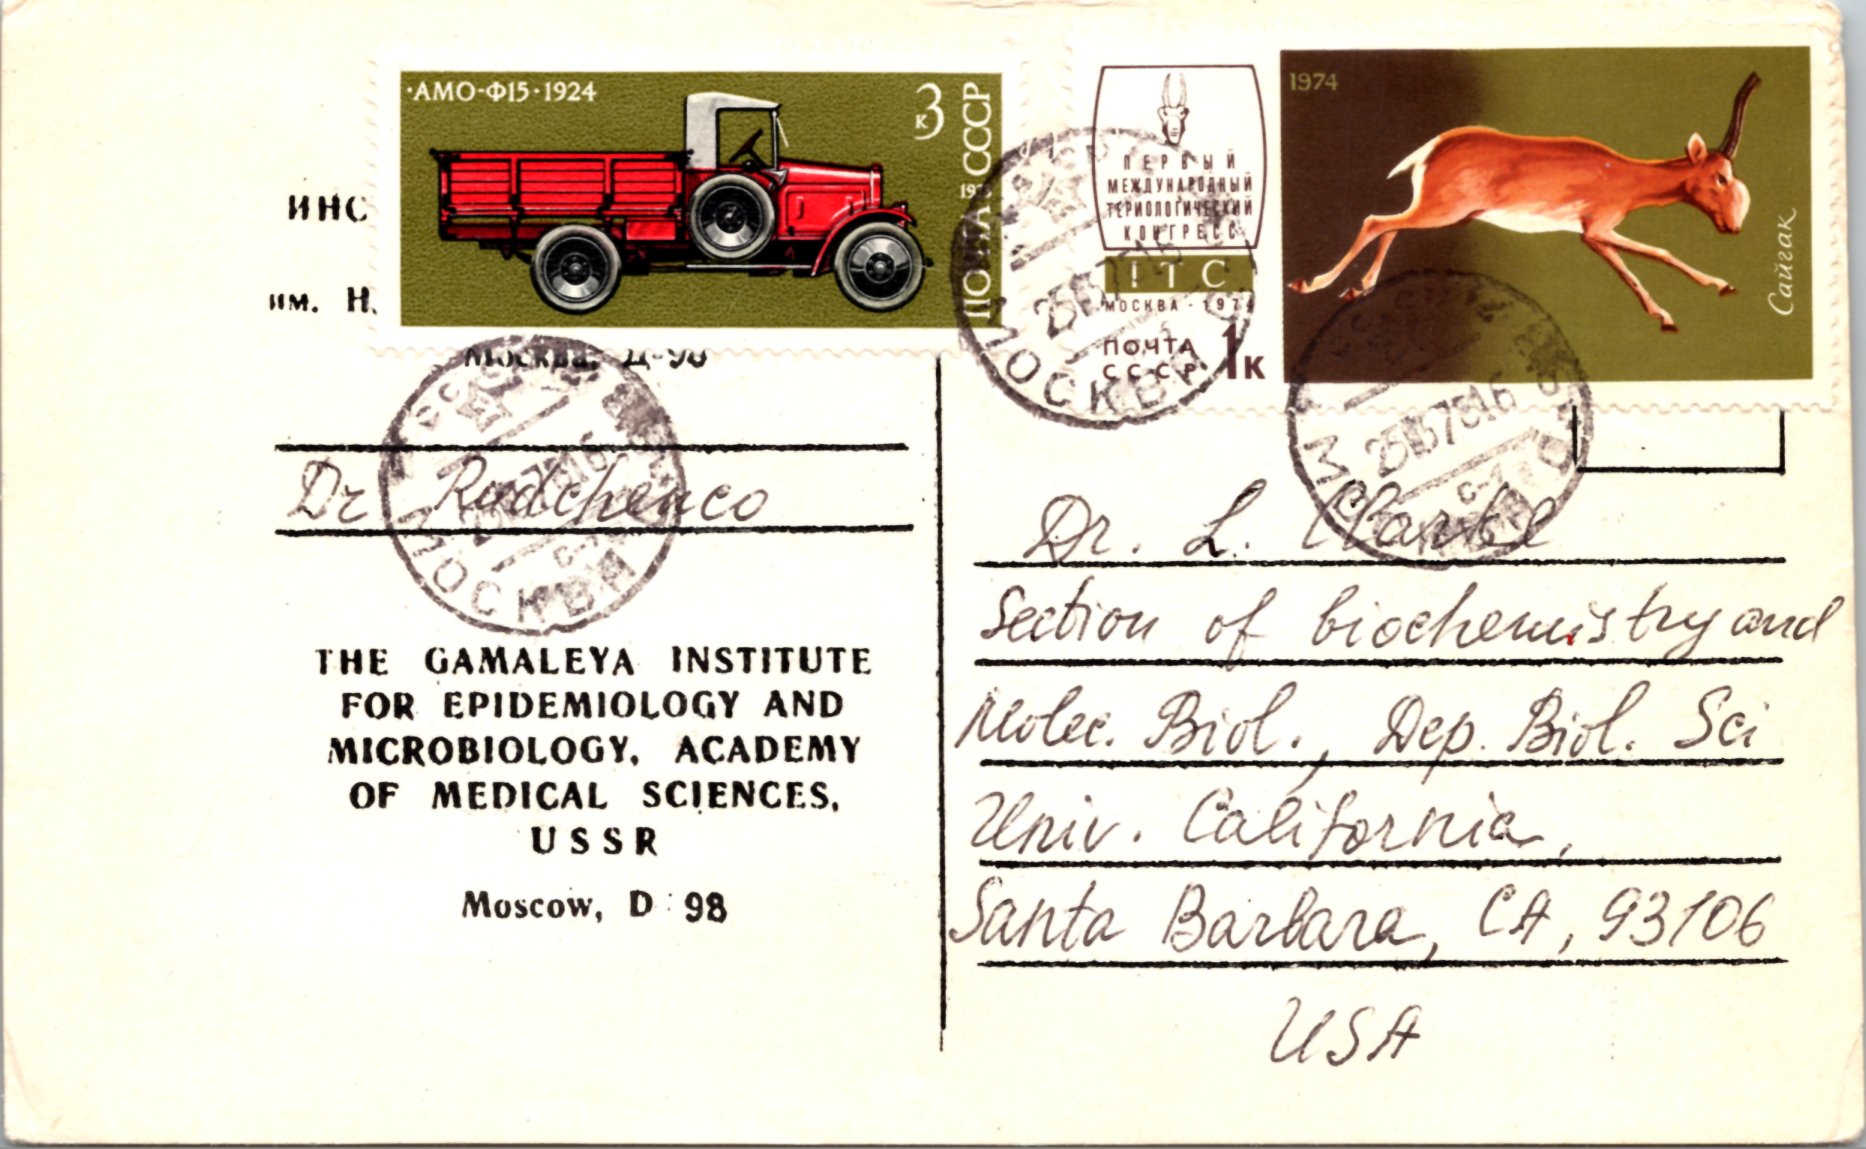 ·АМО-Ф15·1924
3
к
ПОЧТА СССР
ИНС
им. Н.
Москва, Д-98
Dr Rudchenco
THE GAMALEYA INSTITUTE
FOR EPIDEMIOLOGY AND
MICROBIOLOGY, ACADEMY
OF MEDICAL SCIENCES,
USSR
Moscow, D 98
МОСКВА
ПЕРВЫЙ
МЕЖДУНАРОДНЫЙ
ТЕРИОЛОГИЧЕСКИЙ
КОНГРЕСС
ITC
МОСКВА - 1974
ПОЧТА
СССР
1к
1974
Сайгак
МОСКВА
МОСКВА
Dr. L.
Section of biochemistry and
Molec. Biol., Dep. Biol. Sci
Univ. California,
Santa Barbara, CA, 93106
USA